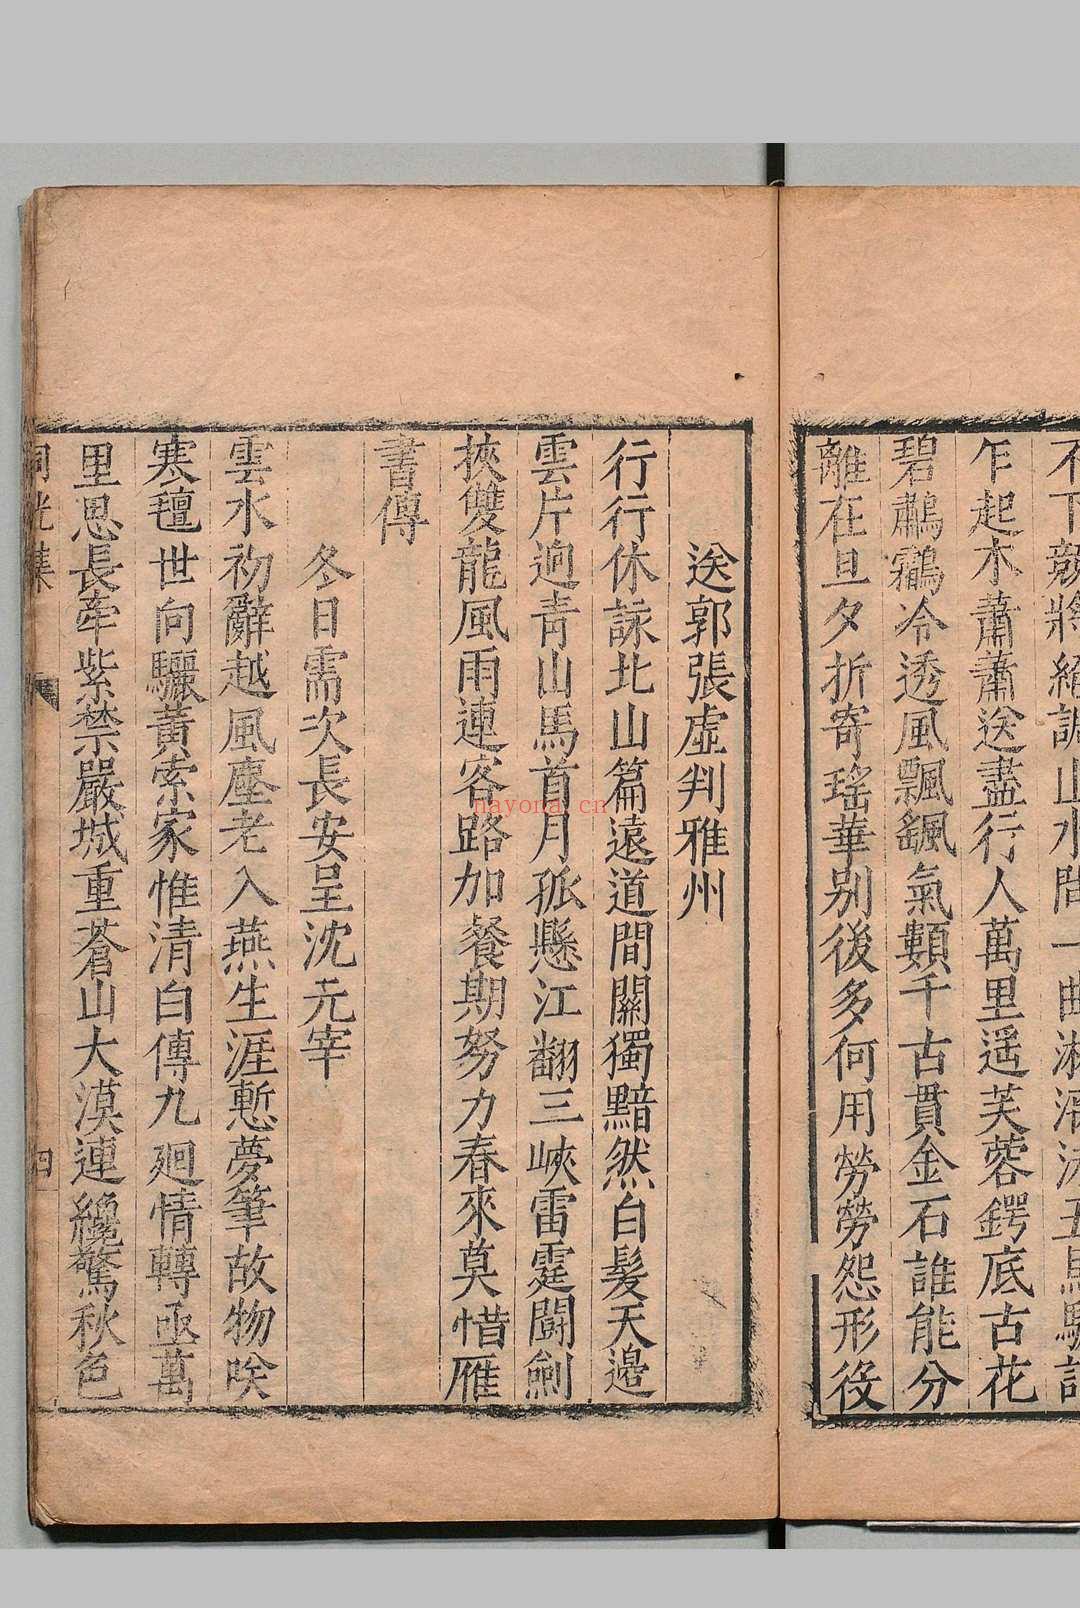 乍起木蕭蕭送盡行人萬里遥芙蓉鍔底古花
碧鸊鷉冷透風飄飄氣類千古貫金石誰能分
離在旦夕折寄瑤華别後多何用勞勞怨形役
送郭張虛判雅州
行行休詠北山篇遠道間關獨黯然白髮天邊
雲片逈青山馬首月孤懸江翻三峽雷霆鬭劍
挾雙龍風雨連客路加餐期努力春來莫惜雁
書傳
冬日需次長安呈沈元宰
雲水初辭越風塵老入燕生涯慙夢筆故物唉
寒氊世向驪黃索家惟清白傳九廻情轉亟萬
里思長牽紫禁嚴城重蒼山大漠連纔驚秋色
四
nayona.cn